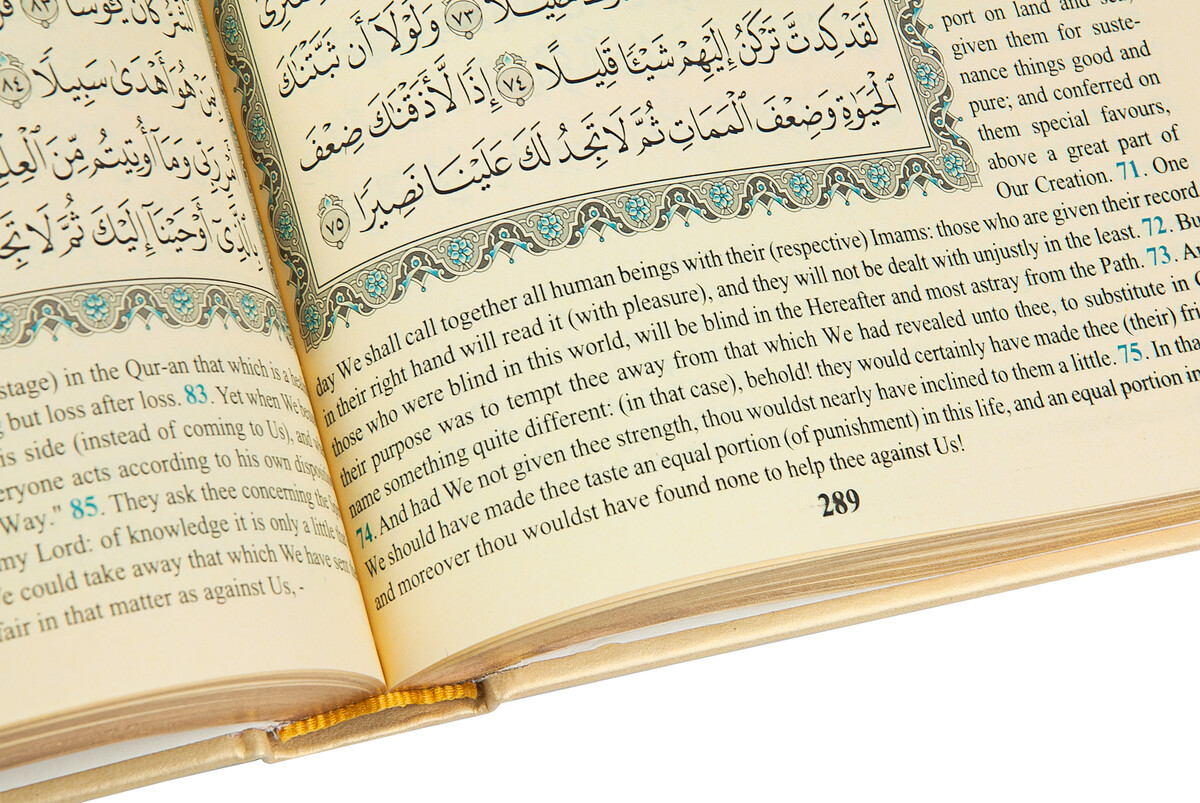 ٧٣ وَلَوْلَآ أَن ثَبَّتْنَٰكَ
لَقَدْ كِدتَّ تَرْكَنُ إِلَيْهِمْ شَيْـًٔا قَلِيلًا ٧٤ إِذًا لَّأَذَقْنَٰكَ ضِعْفَ
ٱلْحَيَوٰةِ وَضِعْفَ ٱلْمَمَاتِ ثُمَّ لَا تَجِدُ لَكَ عَلَيْنَا نَصِيرًا ٧٥
port on land and sea;
given them for suste-
nance things good and
pure; and conferred on
them special favours,
above a great part of
Our Creation. 71. One
day We shall call together all human beings with their (respective) Imams: those who are given their record
in their right hand will read it (with pleasure), and they will not be dealt with unjustly in the least. 72. But
those who were blind in this world, will be blind in the Hereafter and most astray from the Path. 73.
their purpose was to tempt thee away from that which We had revealed unto thee, to substitute in
name something quite different: (in that case), behold! they would certainly have made thee (their)
74. And had We not given thee strength, thou wouldst nearly have inclined to them a little. 75. In
We should have made thee taste an equal portion (of punishment) in this life, and an equal portion in
and moreover thou wouldst have found none to help thee against Us!
289
كَانَ يَـُٔوسًا ٨٣
هُوَ أَهْدَىٰ سَبِيلًا ٨٤
رَبِّى وَمَآ أُوتِيتُم مِّنَ
أَوْحَيْنَآ إِلَيْكَ ثُمَّ لَا
stage) in the Qur-an that which is a
but loss after loss. 83. Yet when We
side (instead of coming to Us), and
acts according to his own
Way." 85. They ask thee concerning the
my Lord: of knowledge it is only a little
could take away that which We have sent
in that matter as against Us,-